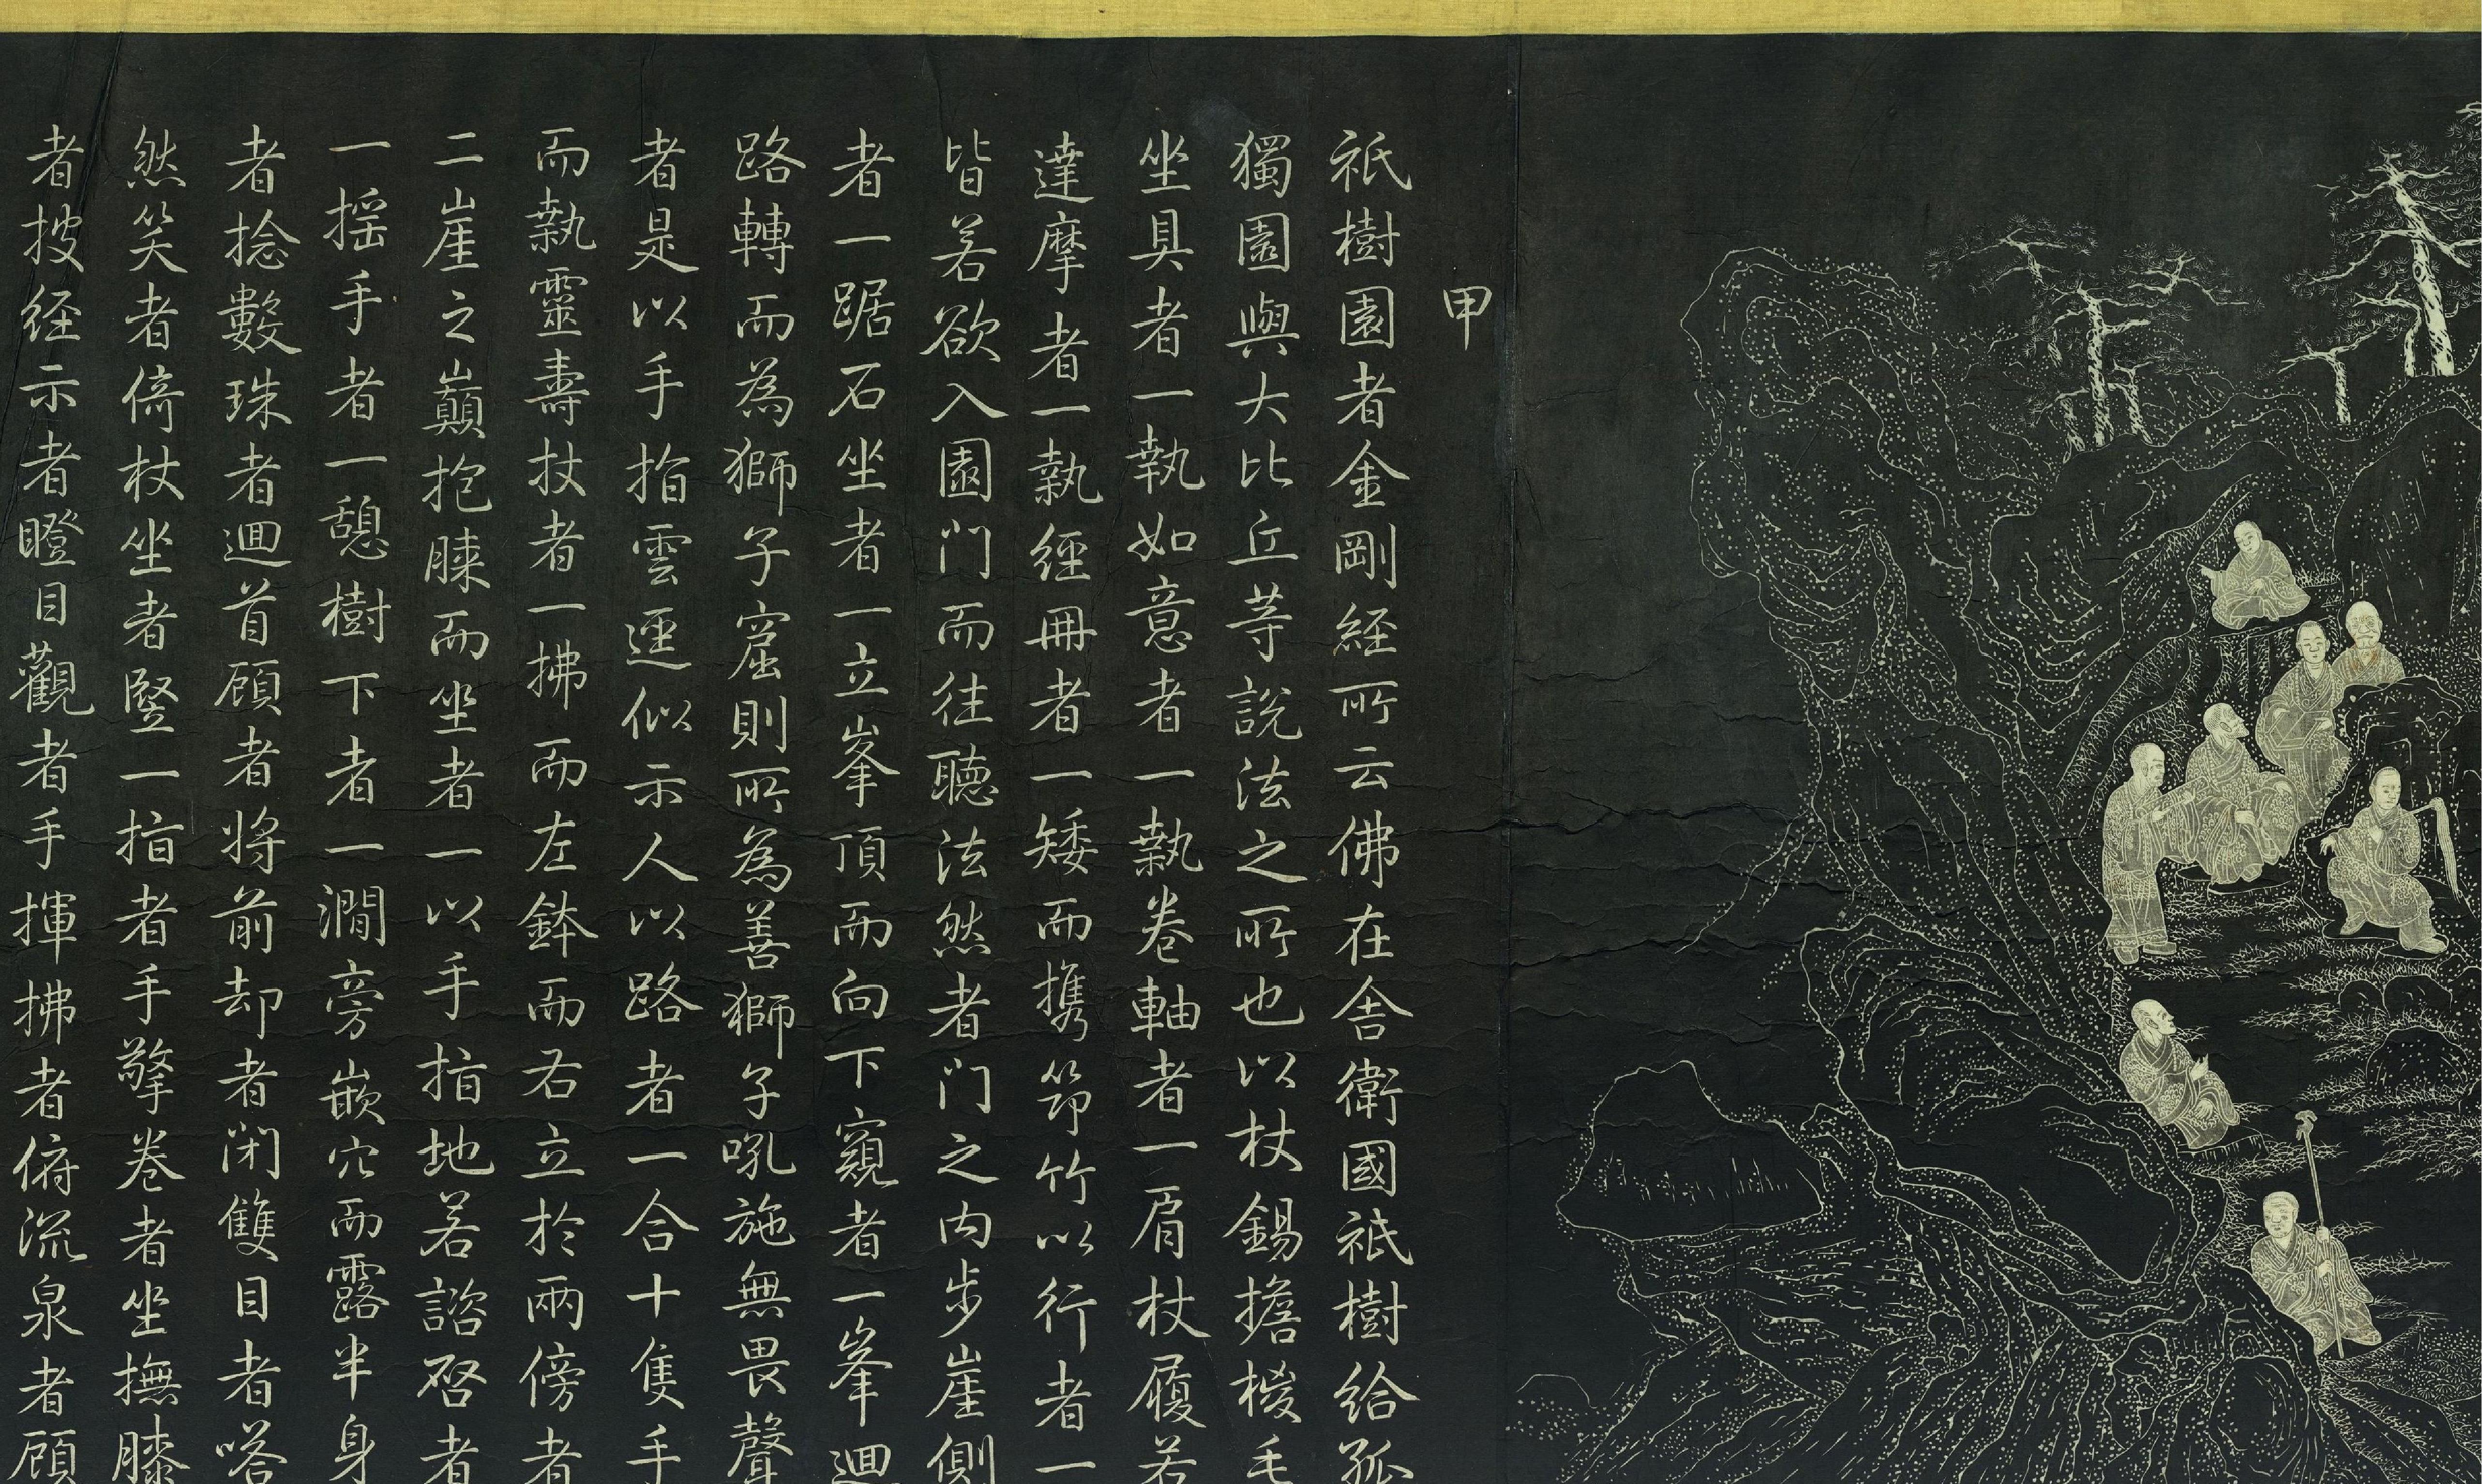 甲
祇樹園者金剛経所云佛在舎衛國祇樹給孤
獨園與大比丘等說法之所也以杖錫擔椶毛
坐具者一執如意者一執卷軸者一肩杖履若
達摩者一執經冊者一矮而攜笻竹以行者一
皆若欲入園门而往聽法然者门之内步崖側
者一踞石坐者一立峯頂而向下窺者一峯迴
路轉而為獅子窟則所為善獅子吼施無畏聲
者是以手指雲逕似示人以路者一合十隻手
而執靈壽杖者一拂而左鉢而右立於兩傍者
二崖之巔抱膝而坐者一以手指地若諮啓者
一摇手者一憩樹下者一澗旁嵌穴而露半身
者捻數珠者迴首顧者将前却者闭雙目者嗒
然笑者倚杖坐者竪一指者手擎卷者坐撫膝
者披経示者瞪目觀者手揮拂者俯流泉者顧